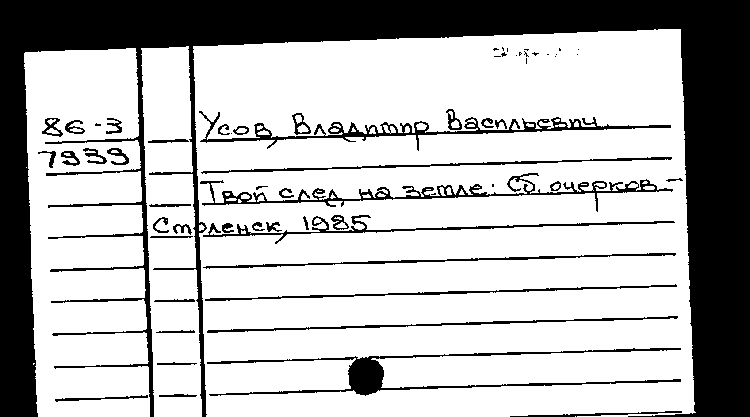 86-3
7939
Усов, Владимир Васильевич.
Твой след на земле: Сб. очерков –
Смоленск, 1985